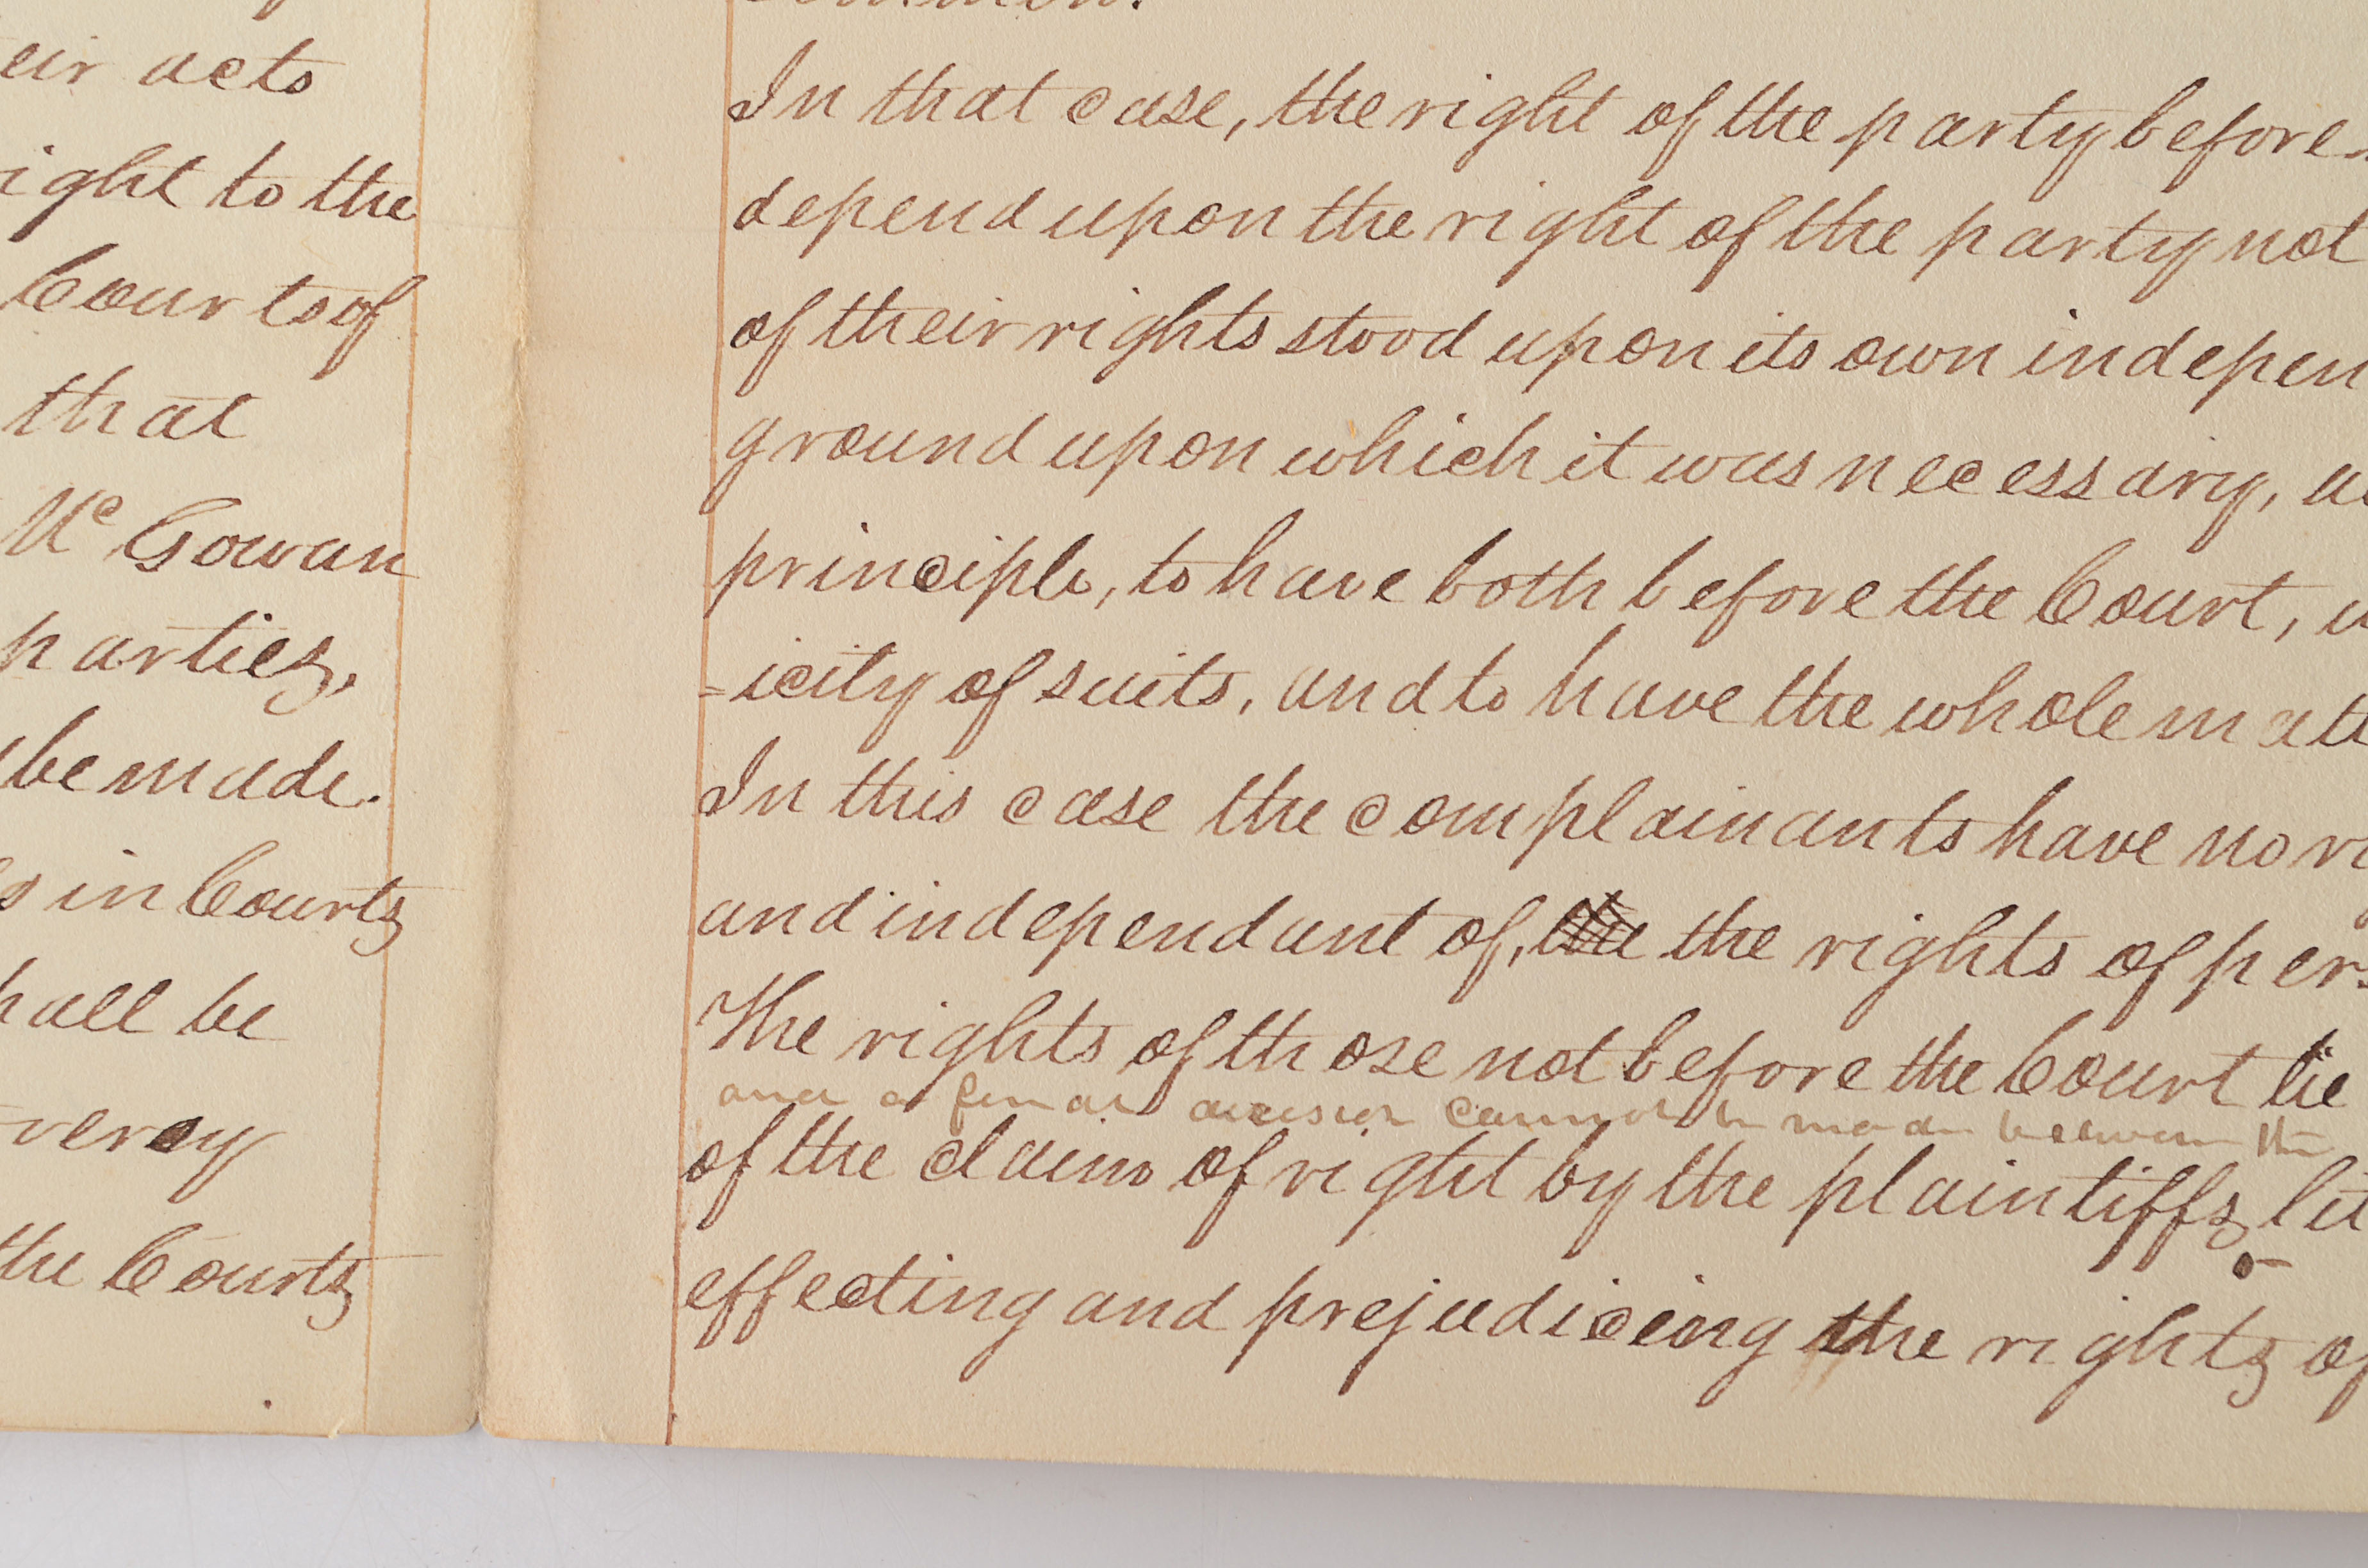 eir acts
ight to the
Courts of
that
Mc Gowan
parties,
be made.
s in Courts
hall be
the Courts
In that case, the right of the party before
depend upon the right of the party not
of their rights stood upon its own indepen
ground upon which it was necessary, a
principle, to have both before the Court,
=icity of suits, and to have the whole matt
In this case the complainants have no r
and independant of, the the rights of per
The rights of those not before the Court lie
and a final decision cannot be made between the
of the claim of right by the plaintiffs,
effecting and prejudicing the rights of